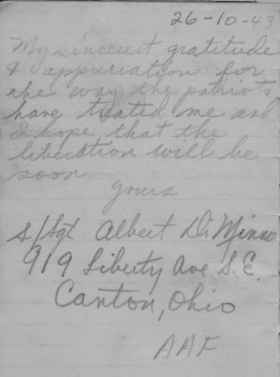 26-10-43
My sincerest gratitude
& appriciation for
the way the patriots
have treated me and
I hope, that the
liberation will be
soon
Yours
S/Sgt Albert Di
919 Liberty Ave S.E.
Canton, Ohio
AAF